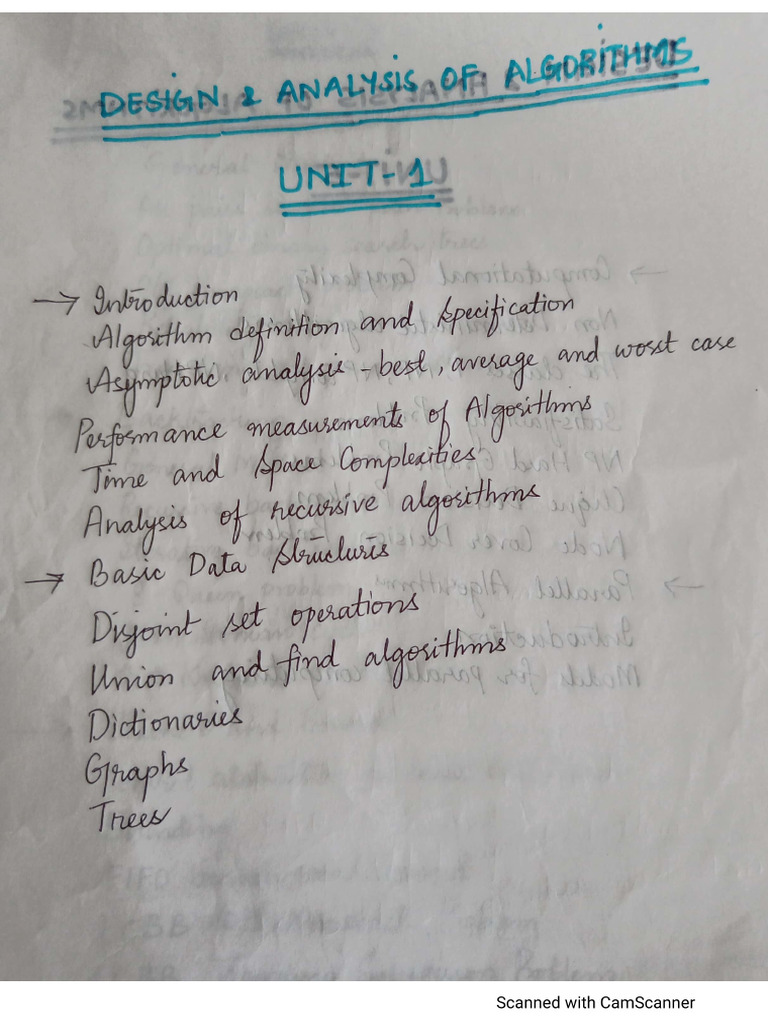 DESIGN & ANALYSIS OF ALGORITHMS
UNIT-1
→ Introduction
Algorithm definition and specification
Asymptotic analysis - best, average and worst case
Performance measurements of Algorithms
Time and space Complexities
Analysis of recursive algorithms
→ Basic Data Structures
Disjoint set operations
Union and find algorithms
Dictionaries
Graphs
Trees
Scanned with CamScanner